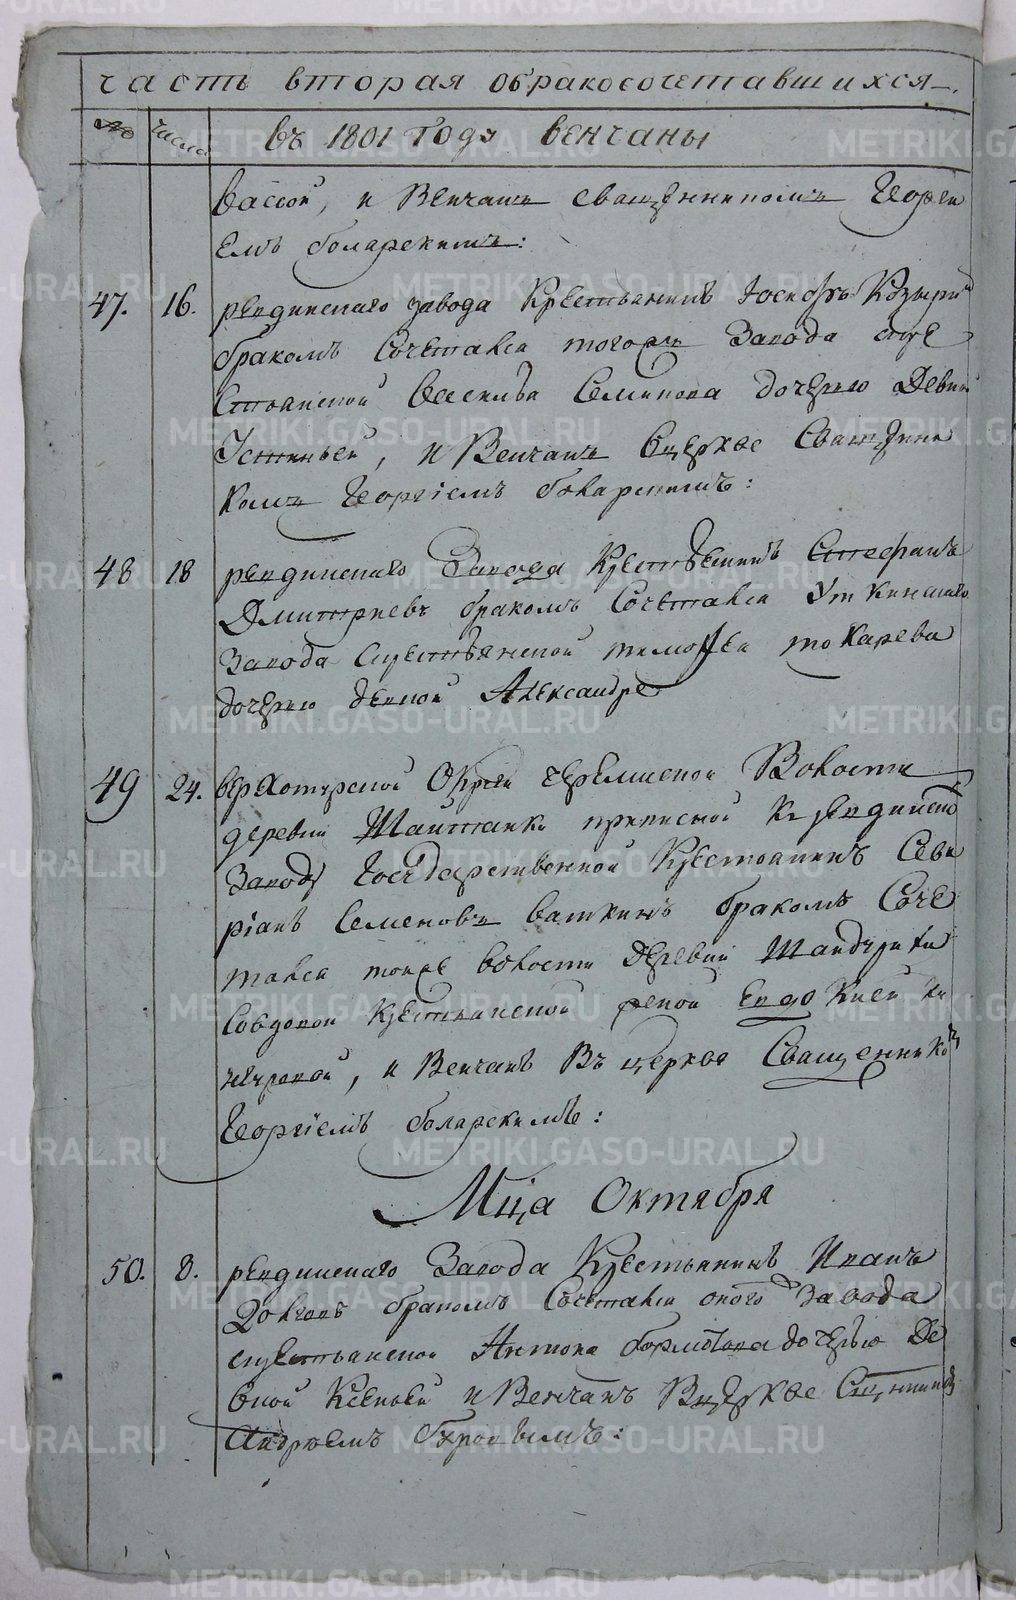 часть вторая обракосочетавшихся
№ числа въ 1801 годѵ венчаны
Вассой, и Венчанъ Священникомъ Георги
емъ боларскимъ:
47. 16. ревдинскаго завода Крестьянинъ Іосифъ
бракомъ Сочетался тогожъ Завода
Василья Семинова дочерью Девкой
Устиньей, и Венчанъ Вцеркве Священни
комъ Георгіемъ боларскимъ:
48 18 ревдинскаго Завода Крестьенинъ Стефанъ
Дмитриевъ бракомъ Сочетался Уткинскаго
Завода Скрестьянской тимофея токарева
дочерью девкой Александре
49 24. Верхотурской Округи черемиской Волости
деревни Шайтанки приписной Къ ревдинско
Заводу Государственной Крестьянинъ Севи
ріанъ Семеновъ Ваткинъ бракомъ Соче
тался тойже Волости Деревни
Совдовой Крестьянской женой Евдокией
, и Венчанъ Въ церкве Священнико
Георгіемъ боларскимъ:
Мца Октября
50. 8. ревдинскаго Завода Крестьянинъ Иванъ
бракомъ Сочетался оного Завода
скрестьянской Антона дочерью Де
вкой Ксеньей и Венчанъ Вцеркве
Андреемъ
METRIKI.GASO-URAL.RU